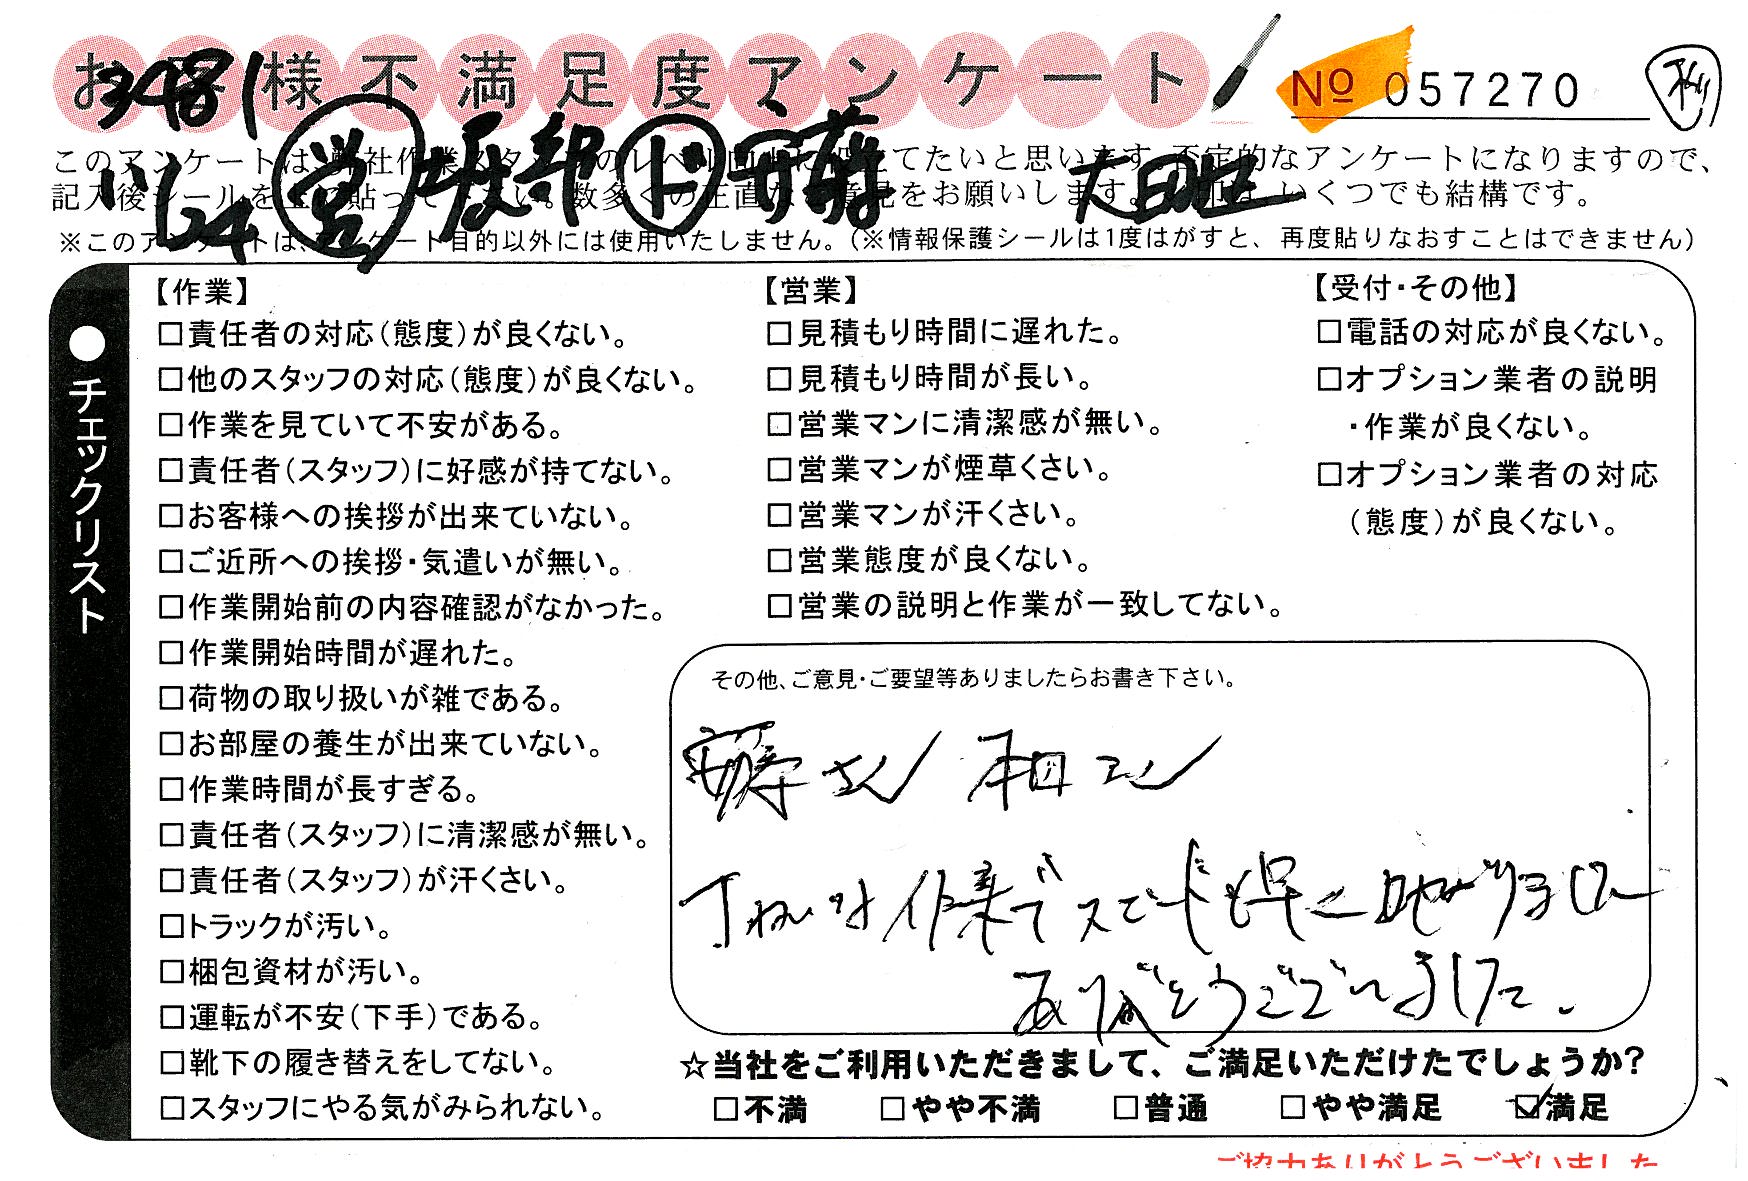 お客様不満足度アンケート
№ 057270
3481
11/24 営 服部 ド 安藤 太田
このアンケートは、弊社作業スタッフのレベル向上に役立てたいと思います。否定的なアンケートになりますので、
記入後シールを上に貼って下さい。数多くの正直なご意見をお願いします。いくつでも結構です。
※このアンケートは、アンケート目的以外には使用いたしません。（※情報保護シールは1度はがすと、再度貼りなおすことはできません）
●チェックリスト
【作業】
□責任者の対応（態度）が良くない。
□他のスタッフの対応（態度）が良くない。
□作業を見ていて不安がある。
□責任者（スタッフ）に好感が持てない。
□お客様への挨拶が出来ていない。
□ご近所への挨拶・気遣いが無い。
□作業開始前の内容確認がなかった。
□作業開始時間が遅れた。
□荷物の取り扱いが雑である。
□お部屋の養生が出来ていない。
□作業時間が長すぎる。
□責任者（スタッフ）に清潔感が無い。
□責任者（スタッフ）が汗くさい。
□トラックが汚い。
□梱包資材が汚い。
□運転が不安（下手）である。
□靴下の履き替えをしてない。
□スタッフにやる気がみられない。
【営業】
□見積もり時間に遅れた。
□見積もり時間が長い。
□営業マンに清潔感が無い。
□営業マンが煙草くさい。
□営業マンが汗くさい。
□営業態度が良くない。
□営業の説明と作業が一致してない。
【受付・その他】
□電話の対応が良くない。
□オプション業者の説明
・作業が良くない。
□オプション業者の対応
（態度）が良くない。
その他、ご意見・ご要望等ありましたらお書き下さい。
さん さん
丁ねいな作業でスピードも早く助かりました
ありがとうございました。
☆当社をご利用いただきまして、ご満足いただけたでしょうか?
□不満 □やや不満 □普通 □やや満足 ☑満足
ご協力ありがとうございました